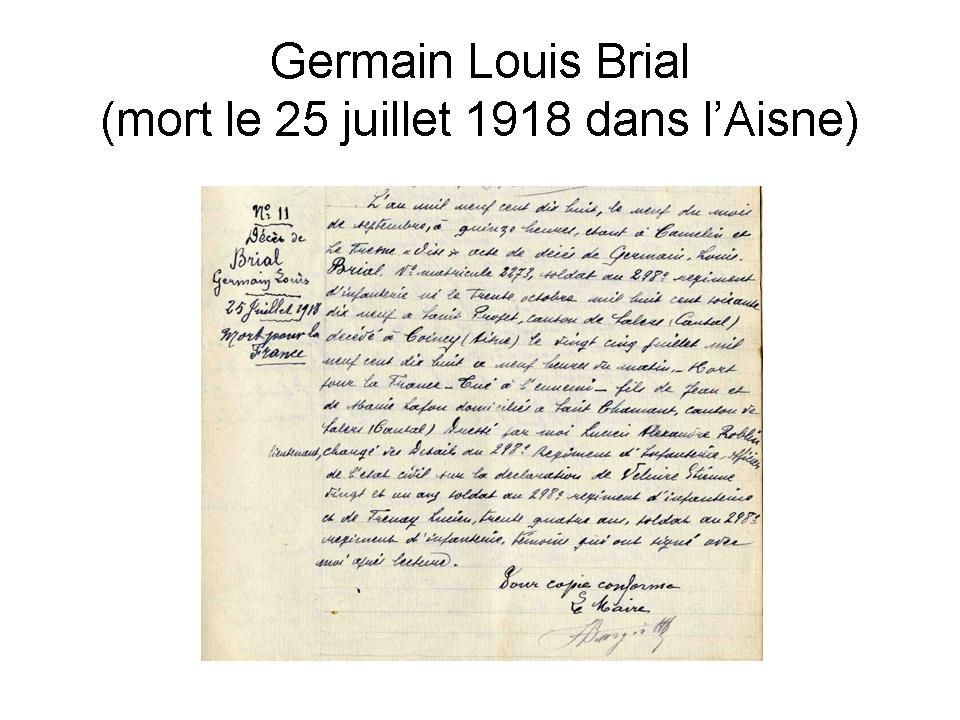 Germain Louis Brial
(mort le 25 juillet 1918 dans l’Aisne)
No 11
Décès de
Brial
Germain Louis
25 Juillet 1918
Mort pour la
France
L'an mil neuf cent dix huit, le neuf du mois
de septembre, à quinze heures, étant à Camelin et
Le Fresne acte de décès de Germain, Louis
Brial, No matricule 2273, soldat au 298e regiment
d'infanterie né le trente octobre mil huit cent soixante
dix neuf a Saint Projet, canton de Salers (Cantal)
décédé à Coincy (Aisne) le vingt cinq juillet mil
neuf cent dix huit a neuf heures du matin, - Mort
pour la France - Tué à l'ennemi - fils de Jean et
de Marie Lafon domiciliés a Saint Chamant, canton de
Salers (Cantal) Dressé par moi Lucien Alexandre Roblin
lieutenant, chargé des Details au 298e Regiment d'Infanterie, officier
de l'etat civil sur la declaration de Etienne
vingt et un ans soldat au 298e regiment d'infanterie
et de Lucien, trente quatre ans, soldat au 298e
regiment d'infanterie, témoins qui ont signé avec
moi après lecture.
Pour copie conforme
Le Maire